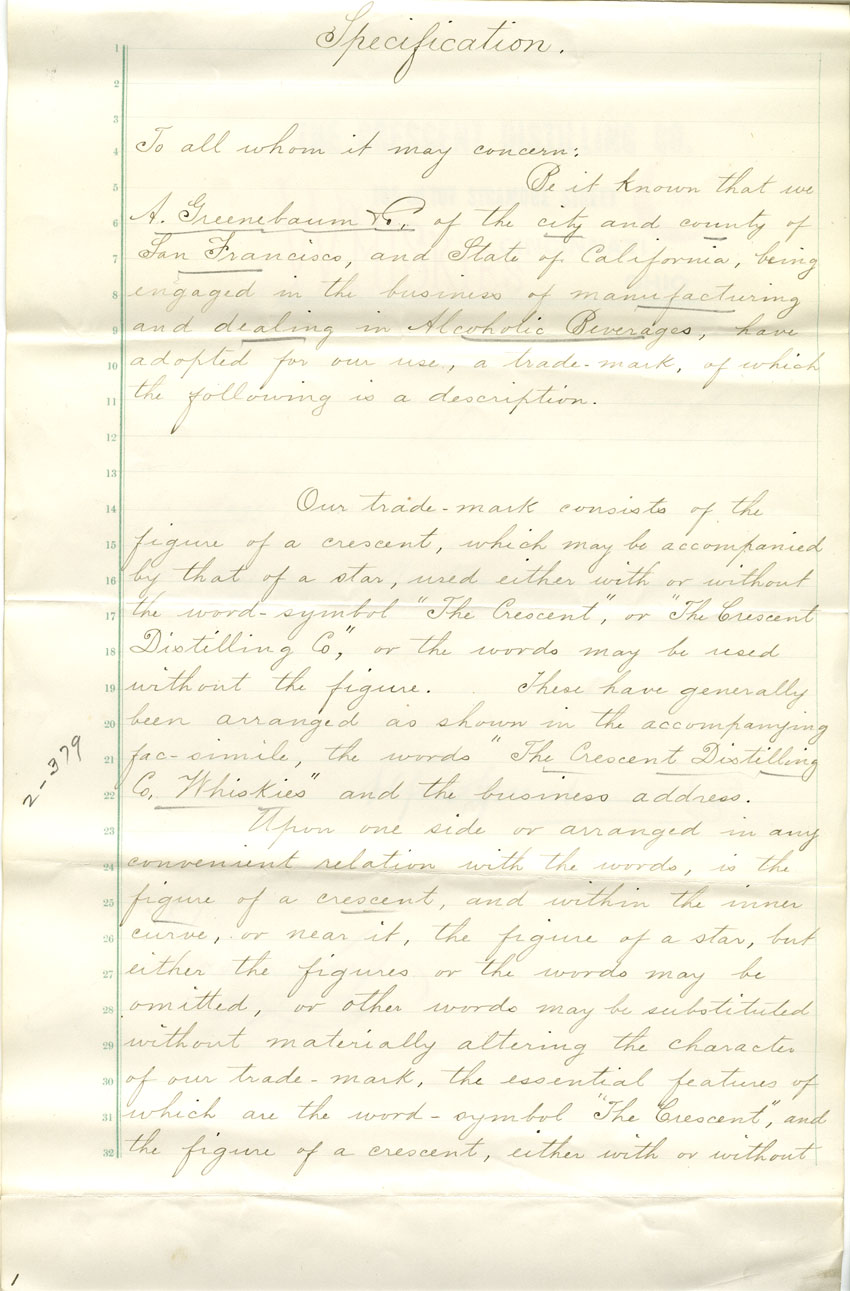 Specification.
1
2
3
4 To all whom it may concern:
5 Be it known that we
6 A. Greenebaum & Co. of the city and county of
7 San Francisco, and State of California, being
8 engaged in the business of manufacturing
9 and dealing in Alcoholic Beverages, have
10 adopted for our use, a trade-mark, of which
11 the following is a description.
12
13
14 Our trade-mark consists of the
15 figure of a crescent, which may be accompanied
16 by that of a star, used either with or without
17 the word-symbol "The Crescent", or "The Crescent
18 Distilling Co," or the words may be used
19 without the figure. These have generally
20 been arranged as shown in the accompanying
21 fac-simile, the words "The Crescent Distilling
22 Co. Whiskies" and the business address.
23 Upon one side or arranged in any
24 convenient relation with the words, is the
25 figure of a crescent, and within the inner
26 curve, or near it, the figure of a star, but
27 either the figures or the words may be
28 omitted, or other words may be substituted
29 without materially altering the character
30 of our trade-mark, the essential features of
31 which are the word-symbol "The Crescent", and
32 the figure of a crescent, either with or without
2-379
1